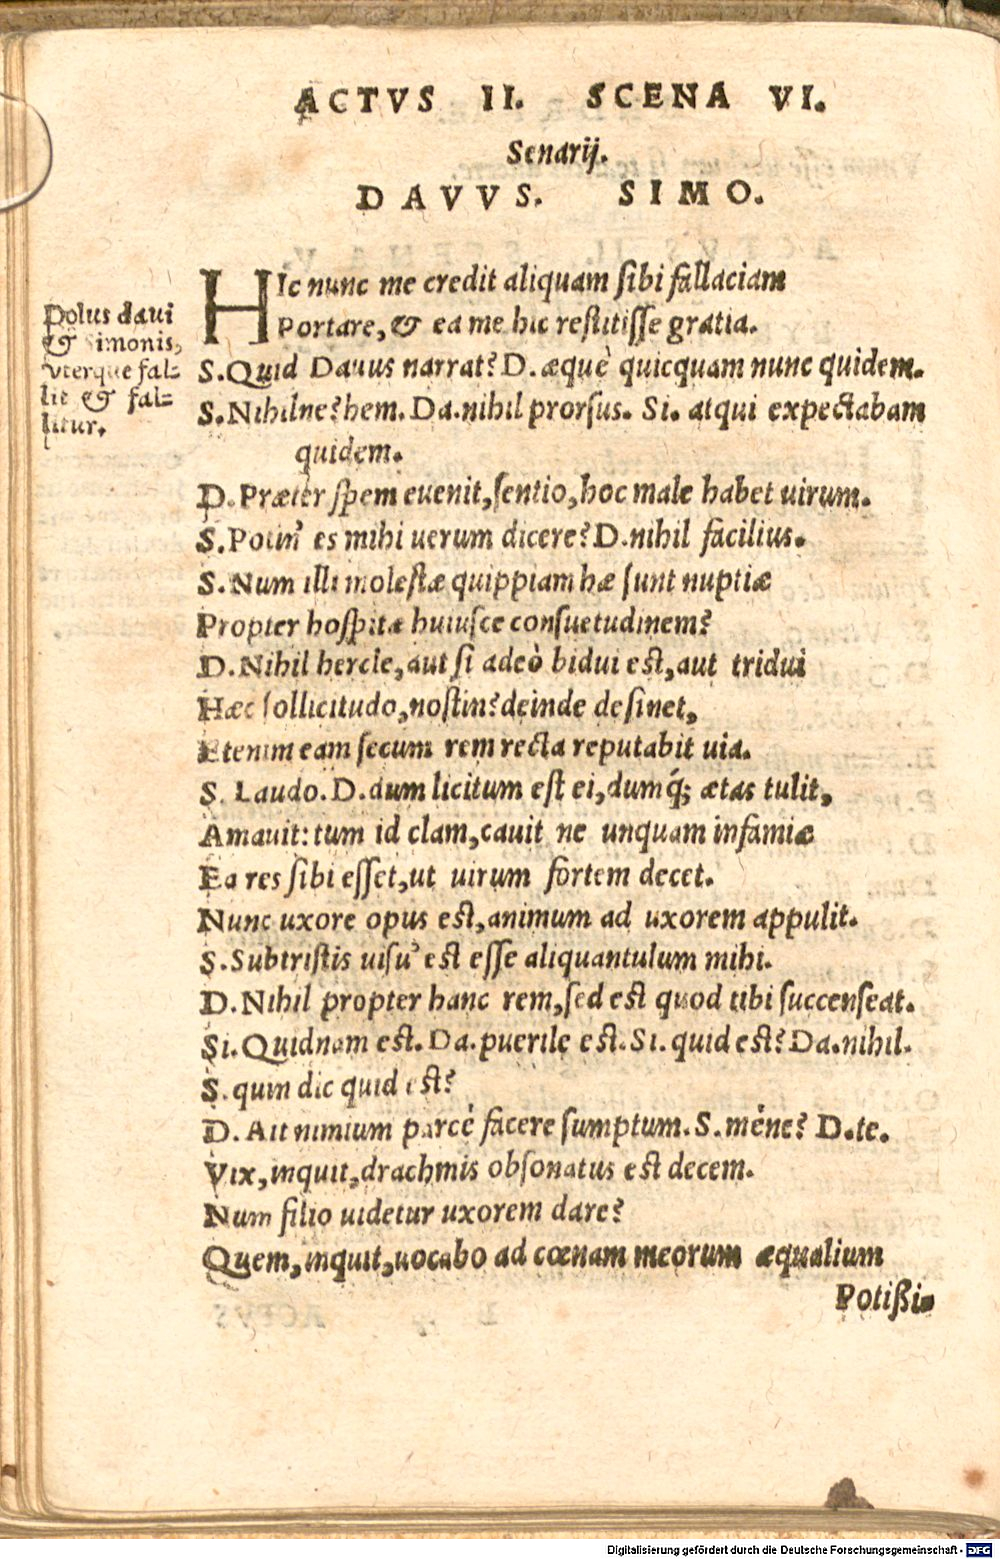 ACTVS II. SCENA VI.
Senarij.
DAVVS. SIMO.
HIc nunc me credit aliquam sibi fallaciam
Portare, & ea me hic restitisse gratia.
Dolus daui
& Simonis,
vterque fal-
lit & fal-
litur.
S. Quid Dauus narrat? D. æquè quicquam nunc quidem.
S. Nihilne? hem. Da. nihil prorsus. Si. atqui expectabam
quidem.
D. Præter spem euenit, sentio, hoc male habet uirum.
S. Potin' es mihi uerum dicere? D. nihil facilius.
S. Num illi molestæ quippiam hæ sunt nuptiæ
Propter hospitæ huiusce consuetudinem?
D. Nihil hercle, aut si adeò bidui est, aut tridui
Hæc sollicitudo, nostin? deinde desinet,
Etenim eam secum rem recta reputabit uia.
S. Laudo. D. dum licitum est ei, dumq́; ætas tulit,
Amauit: tum id clam, cauit ne unquam infamiæ
Ea res sibi esset, ut uirum fortem decet.
Nunc uxore opus est, animum ad uxorem appulit.
S. Subtristis uisu' est esse aliquantulum mihi.
D. Nihil propter hanc rem, sed est quod tibi succenseat.
Si. Quidnam est. Da. puerile est. Si. quid est? Da. nihil.
S. quin dic quid est?
D. Ait nimium parcè facere sumptum. S. méne? D. te.
Vix, inquit, drachmis obsonatus est decem.
Num filio uidetur uxorem dare?
Quem, inquit, uocabo ad cœnam meorum æqualium
Potißi-
Digitalisierung gefördert durch die Deutsche Forschungsgemeinschaft - DFG